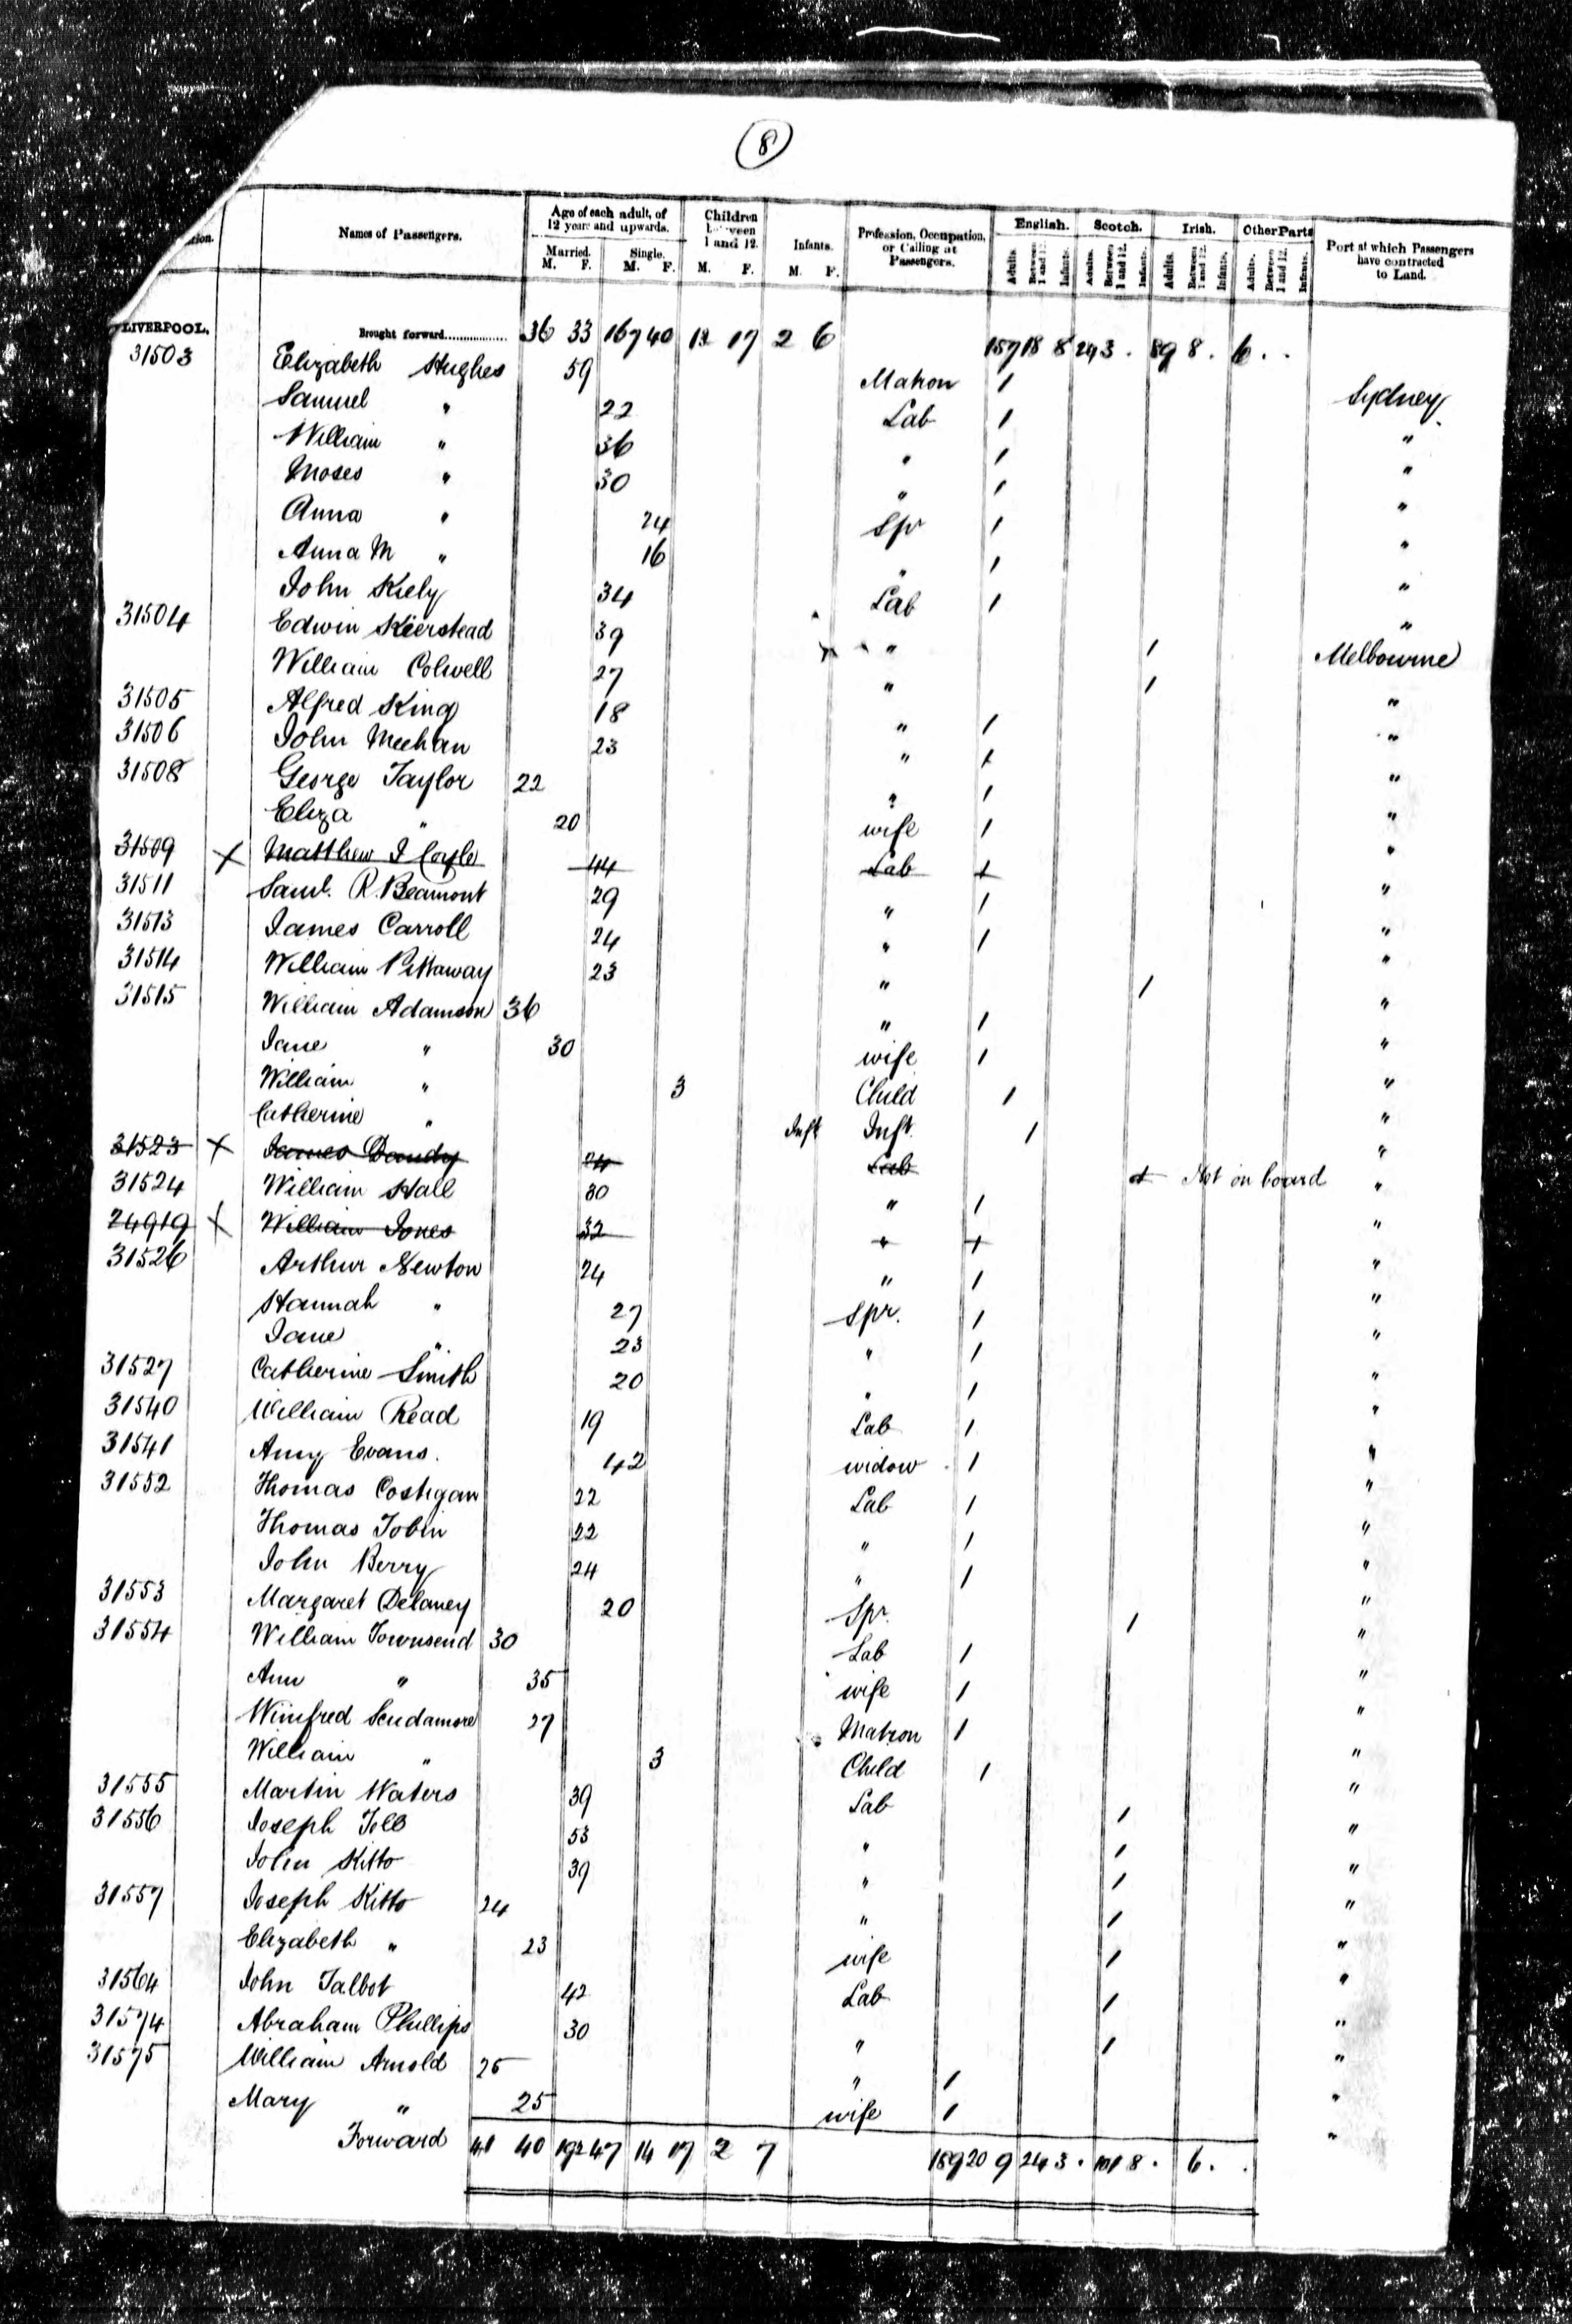 8
Names of Passengers.
Age of each adult, of 12 years and upwards.
Married. M. F.
Single. M. F.
Children between 1 and 12.
M. F.
Infants.
M. F.
Profession, Occupation, or Calling at Passengers.
English.
Adults. Between 1 and 12. Infants.
Scotch.
Adults. Between 1 and 12. Infants.
Irish.
Adults. Between 1 and 12. Infants.
Other Parts
Adults. Between 1 and 12. Infants.
Port at which Passengers have contracted to Land.
LIVERPOOL. Brought forward 36 33 167 40 13 17 2 6 157 18 8 24 3 . 89 8 . 6 . .
31503 Elizabeth Hughes 59 Matron 1 Sydney
Samuel " 22 Lab 1 "
William " 36 " 1 "
Moses " 30 " 1 "
Anna " 24 Spr 1 "
Anna M " 16 " 1 "
John Kiely 34 Lab 1 "
31504 Edwin Kierstead 39 " 1 Melbourne
William Colwell 27 " 1 "
31505 Alfred King 18 " 1 "
31506 John Meehan 23 " 1 "
31508 George Taylor 22 " 1 "
Eliza " 20 wife 1 "
31509 X Matthew J Coyle 44 Lab 1 "
31511 Saml. R. Beamont 29 " 1 "
31513 James Carroll 24 " 1 "
31514 William Pittaway 23 " 1 "
31515 William Adamson 36 " 1 "
Jane " 30 wife 1 "
William " 3 Child 1 "
Catherine " Inft Inft. 1 "
31523 X James Dandy 24 Lab 1 Not on board "
31524 William Hall 30 " 1 "
24919 X William Jones 32 " 1 "
31526 Arthur Newton 24 " 1 "
Hannah " 27 Spr. 1 "
Jane " 23 " 1 "
31527 Catherine Smith 20 " 1 "
31540 William Read 19 Lab 1 "
31541 Amy Evans. 42 widow 1 "
31552 Thomas Costigan 22 Lab 1 "
Thomas Tobin 22 " 1 "
John Berry 24 " 1 "
31553 Margaret Delaney 20 Spr. 1 "
31554 William Townsend 30 Lab 1 "
Ann " 35 wife 1 "
Winifred Scudamore 27 Matron 1 "
William " 3 Child 1 "
31555 Martin Waters 39 Lab 1 "
31556 Joseph 53 " 1 "
John Kitto 39 " 1 "
31557 Joseph Kitto 24 " 1 "
Elizabeth " 23 wife 1 "
31564 John Talbot 42 Lab 1 "
31574 Abraham Phillips 30 " 1 "
31575 William Arnold 25 " 1 "
Mary " 25 wife 1 "
Forward 41 40 192 47 14 17 2 7 189 20 9 24 3 . 101 8 . 6 . .